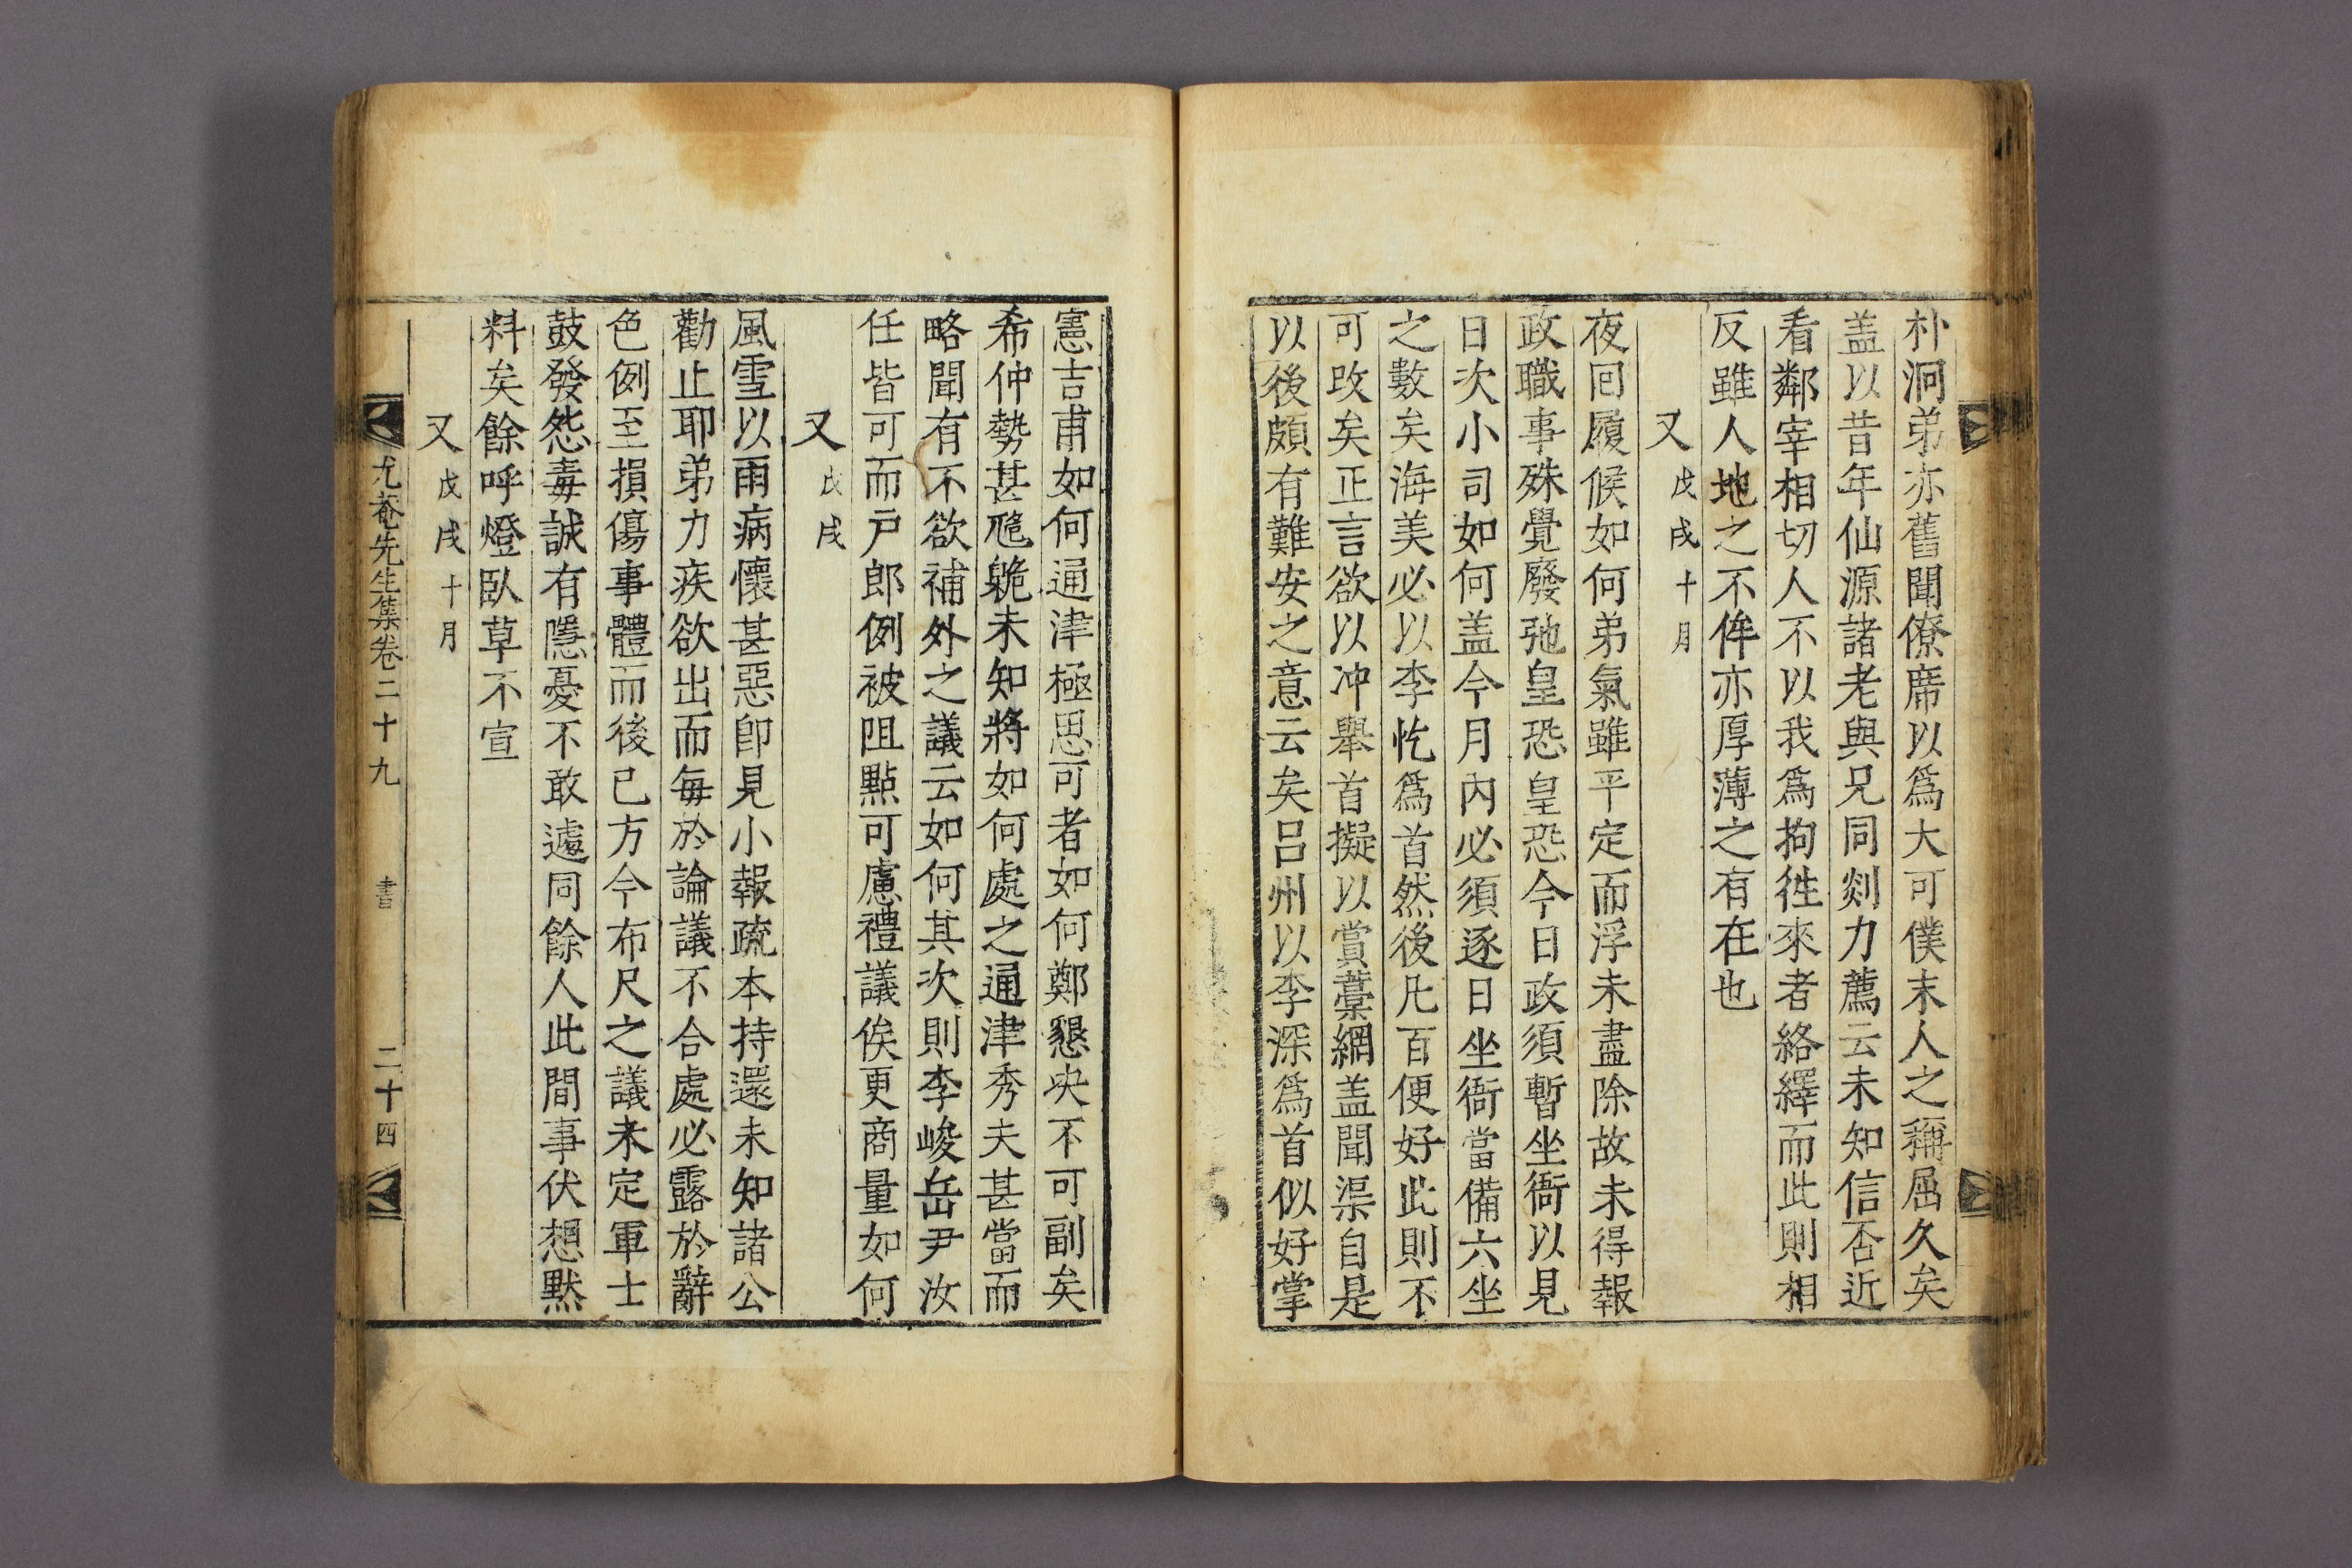 朴洞弟亦舊聞僚席以爲大可僕末人之稱屈久矣
盖以昔年仙源諸老與兄同剡力薦云未知信否近
看鄰宰相切人不以我爲拘徃來者絡繹而此則相
反雖人地之不侔亦厚薄之有在也
又戊戌十月
夜回履候如何弟氣雖平定而浮未盡除故未得報
政職事殊覺廢弛皇恐皇恐今日政須暫坐衙以見
日次小司如何盖今月內必須逐日坐衙當備六坐
之數矣海美必以李忔爲首然後凡百便好此則不
可改矣正言欲以冲舉首擬以賞藁網盖聞渠自是
以後頗有難安之意云矣呂州以李深爲首似好掌
憲吉甫如何通津極思可者如何鄭懇央不可副矣
希仲勢甚卼臲未知將如何處之通津秀夫甚當而
略聞有不欲補外之議云如何其次則李峻岳尹汝
任皆可而戶郎例被阻點可慮禮議俟更商量如何
又戊戌
風雪以雨病懷甚惡卽見小報疏本持還未知諸公
勸止耶弟力疾欲出而每於論議不合處必露於辭
色例至損傷事體而後已方今布尺之議未定軍士
鼓發怨毒誠有隱憂不敢遽同餘人此間事伏想默
料矣餘呼燈臥草不宣
又戊戌十月
尤菴先生集卷二十九 書 二十四